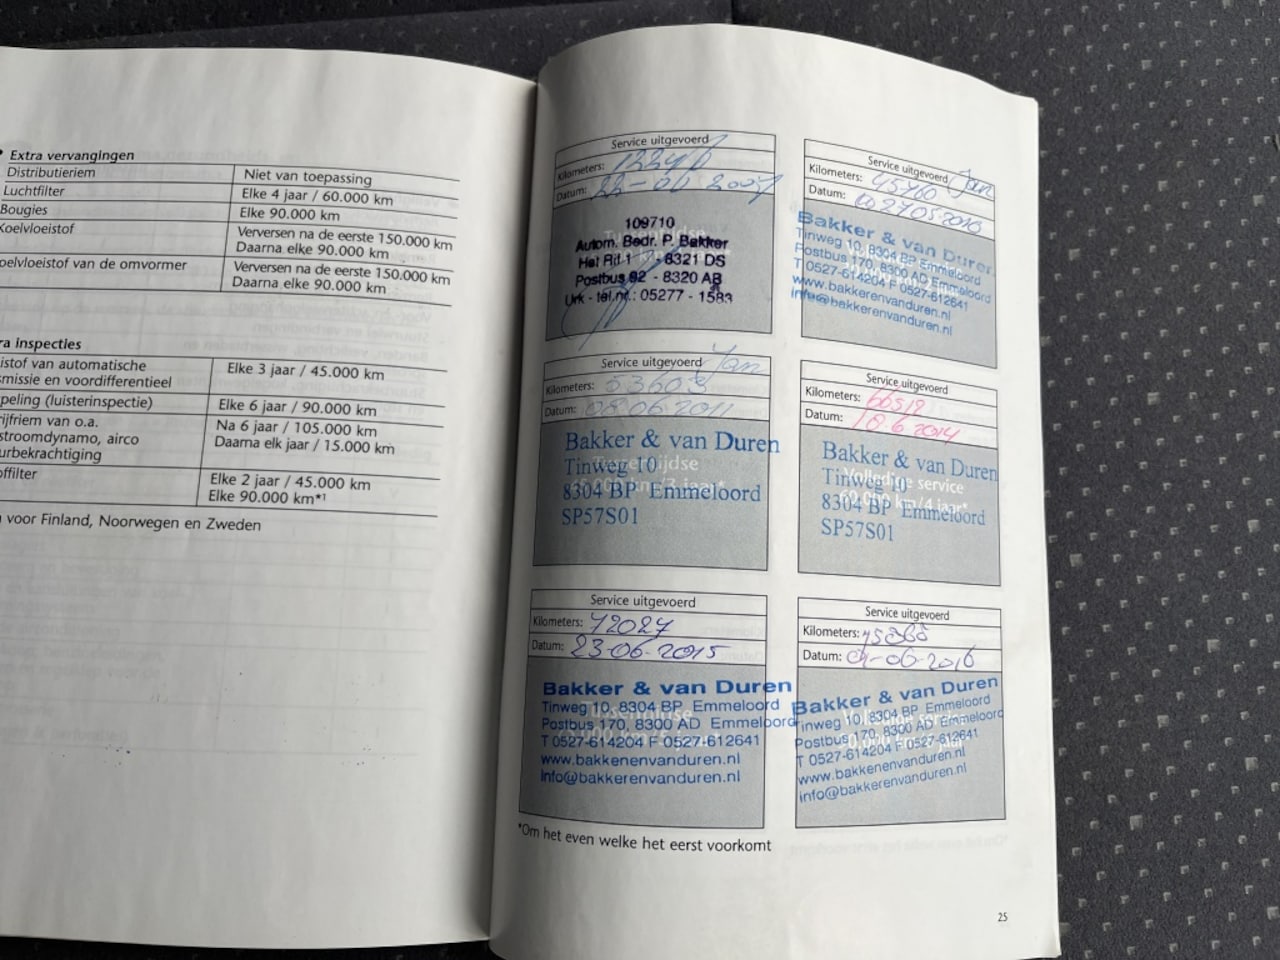 Extra vervangingen
Distributieriem Niet van toepassing
Luchtfilter Elke 4 jaar / 60.000 km
Bougies Elke 90.000 km
Koelvloeistof Verversen na de eerste 150.000 km
Daarna elke 90.000 km
oelvloeistof van de omvormer Verversen na de eerste 150.000 km
Daarna elke 90.000 km
ra inspecties
istof van automatische Elke 3 jaar / 45.000 km
smissie en voordifferentieel
peling (luisterinspectie) Elke 6 jaar / 90.000 km
rijfriem van o.a. Na 6 jaar / 105.000 km
stroomdynamo, airco Daarna elk jaar / 15.000 km
urbekrachtiging
offilter Elke 2 jaar / 45.000 km
Elke 90.000 km*1
voor Finland, Noorwegen en Zweden
Service uitgevoerd
Kilometers:
Datum: 22-06 2007
109710
Autom. Bedr. P. Bakker
Het Rif 1 - 8321 DS
Postbus 92 - 8320 AB
Urk - tel.nr.: 05277 - 1583
Service uitgevoerd Jan
Kilometers: 45760
Datum: 27 05 2010
Bakker & van Duren
Tinweg 10, 8304 BP Emmeloord
Postbus 170, 8300 AD Emmeloord
T 0527-614204 F 0527-612641
www.bakkerenvanduren.nl
info@bakkerenvanduren.nl
Service uitgevoerd Jan
Kilometers: 53603
Datum: 08.06 2011
Tussentijdse
km/3 jaar*
Bakker & van Duren
Tinweg 10
8304 BP Emmeloord
SP57S01
Service uitgevoerd
Kilometers: 66519
Datum: 18.6 2014
Volledige service
60.000 km/4 jaar*
Bakker & van Duren
Tinweg 10
8304 BP Emmeloord
SP57S01
Service uitgevoerd
Kilometers: 72027
Datum: 23-06-2015
Bakker & van Duren
Tinweg 10, 8304 BP Emmeloord
Postbus 170, 8300 AD Emmeloord
T 0527-614204 F 0527-612641
www.bakkenenvanduren.nl
info@bakkerenvanduren.nl
Service uitgevoerd
Kilometers:
Datum: 01-06-2016
Bakker & van Duren
Tinweg 10, 8304 BP Emmeloord
Postbus 170, 8300 AD Emmeloord
T 0527-614204 F 0527-612641
www.bakkenenvanduren.nl
info@bakkerenvanduren.nl
*Om het even welke het eerst voorkomt
25